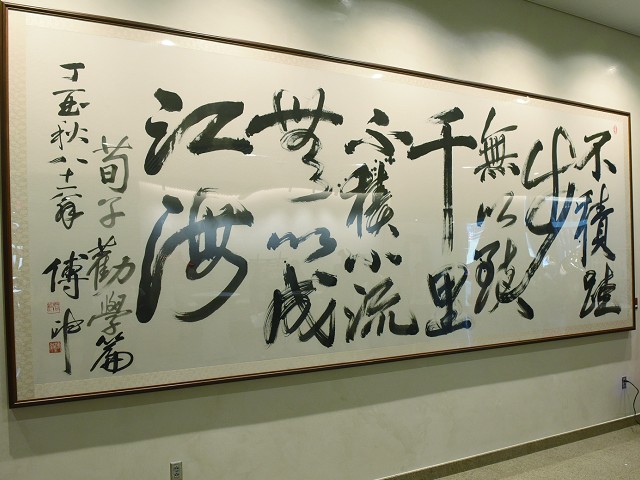 不積跬
步
無以致
千里
不積小流
無以成
江海
荀子勸學篇
丁酉秋八十一翁
傅申